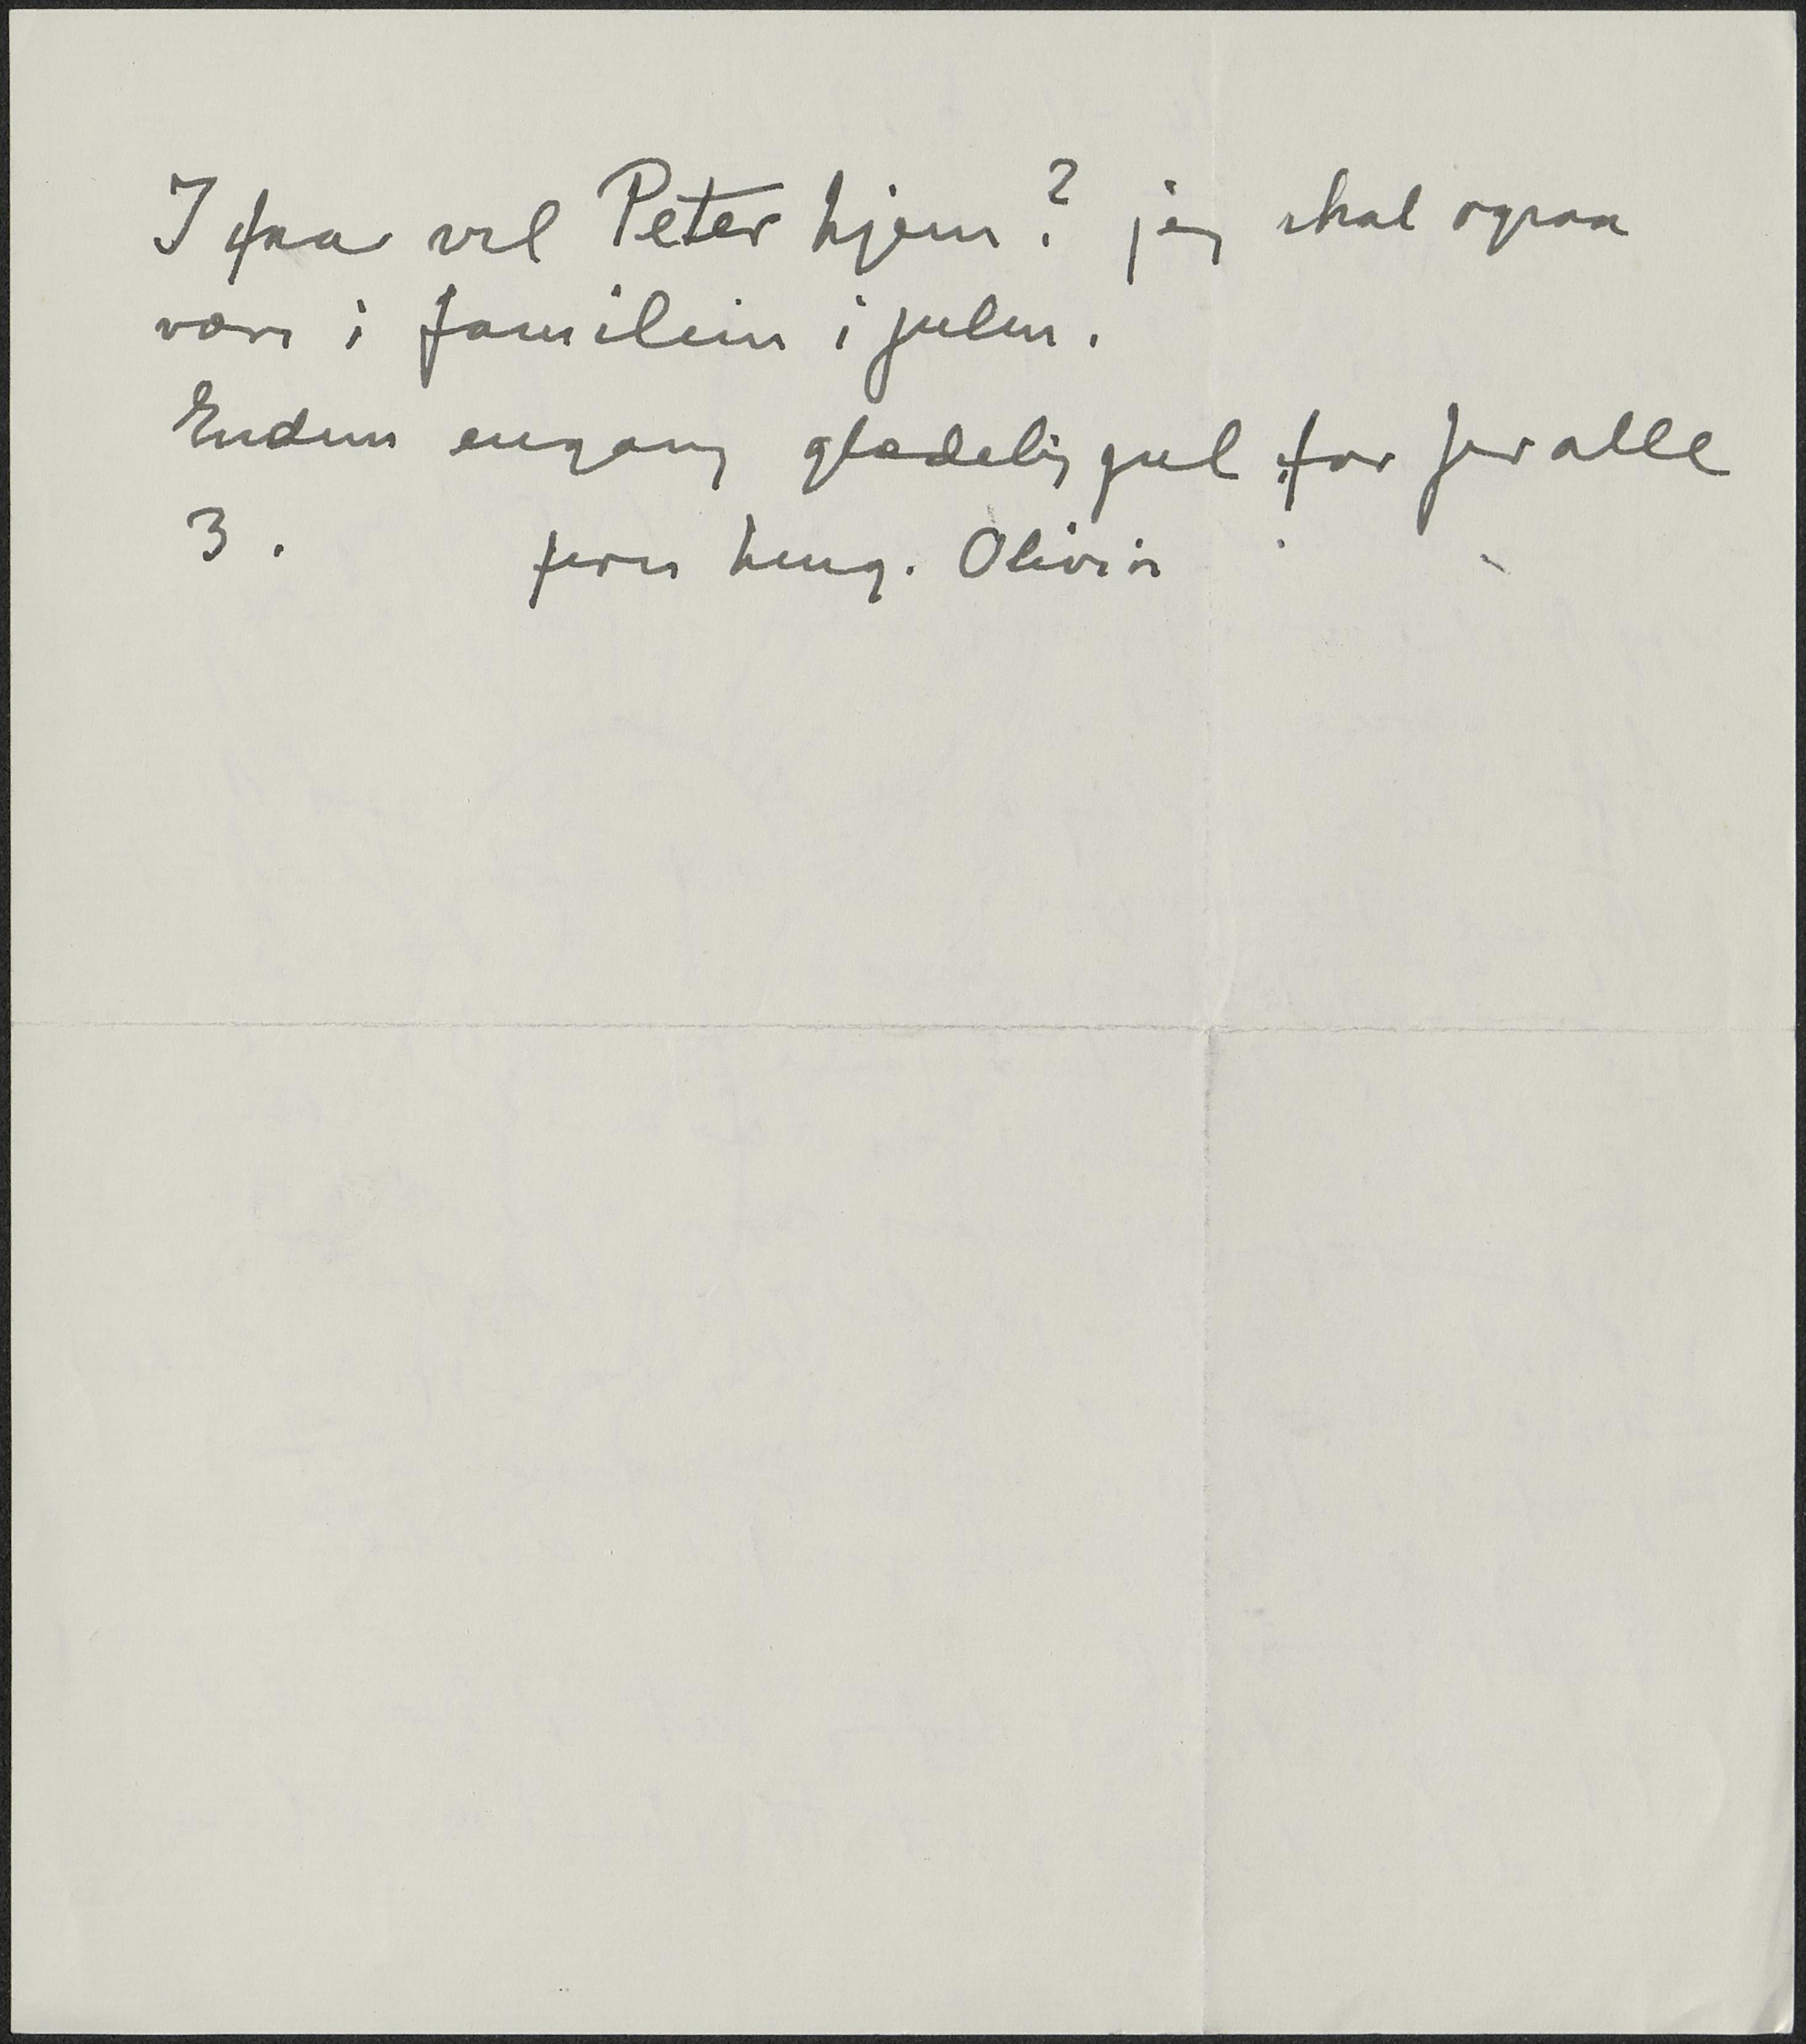 I faar vel Peter hjem? jeg skal ogsaa
være i familien i julen.
Endnu engang glædelig jul for Jer alle
3. Jeres heng. Olivia